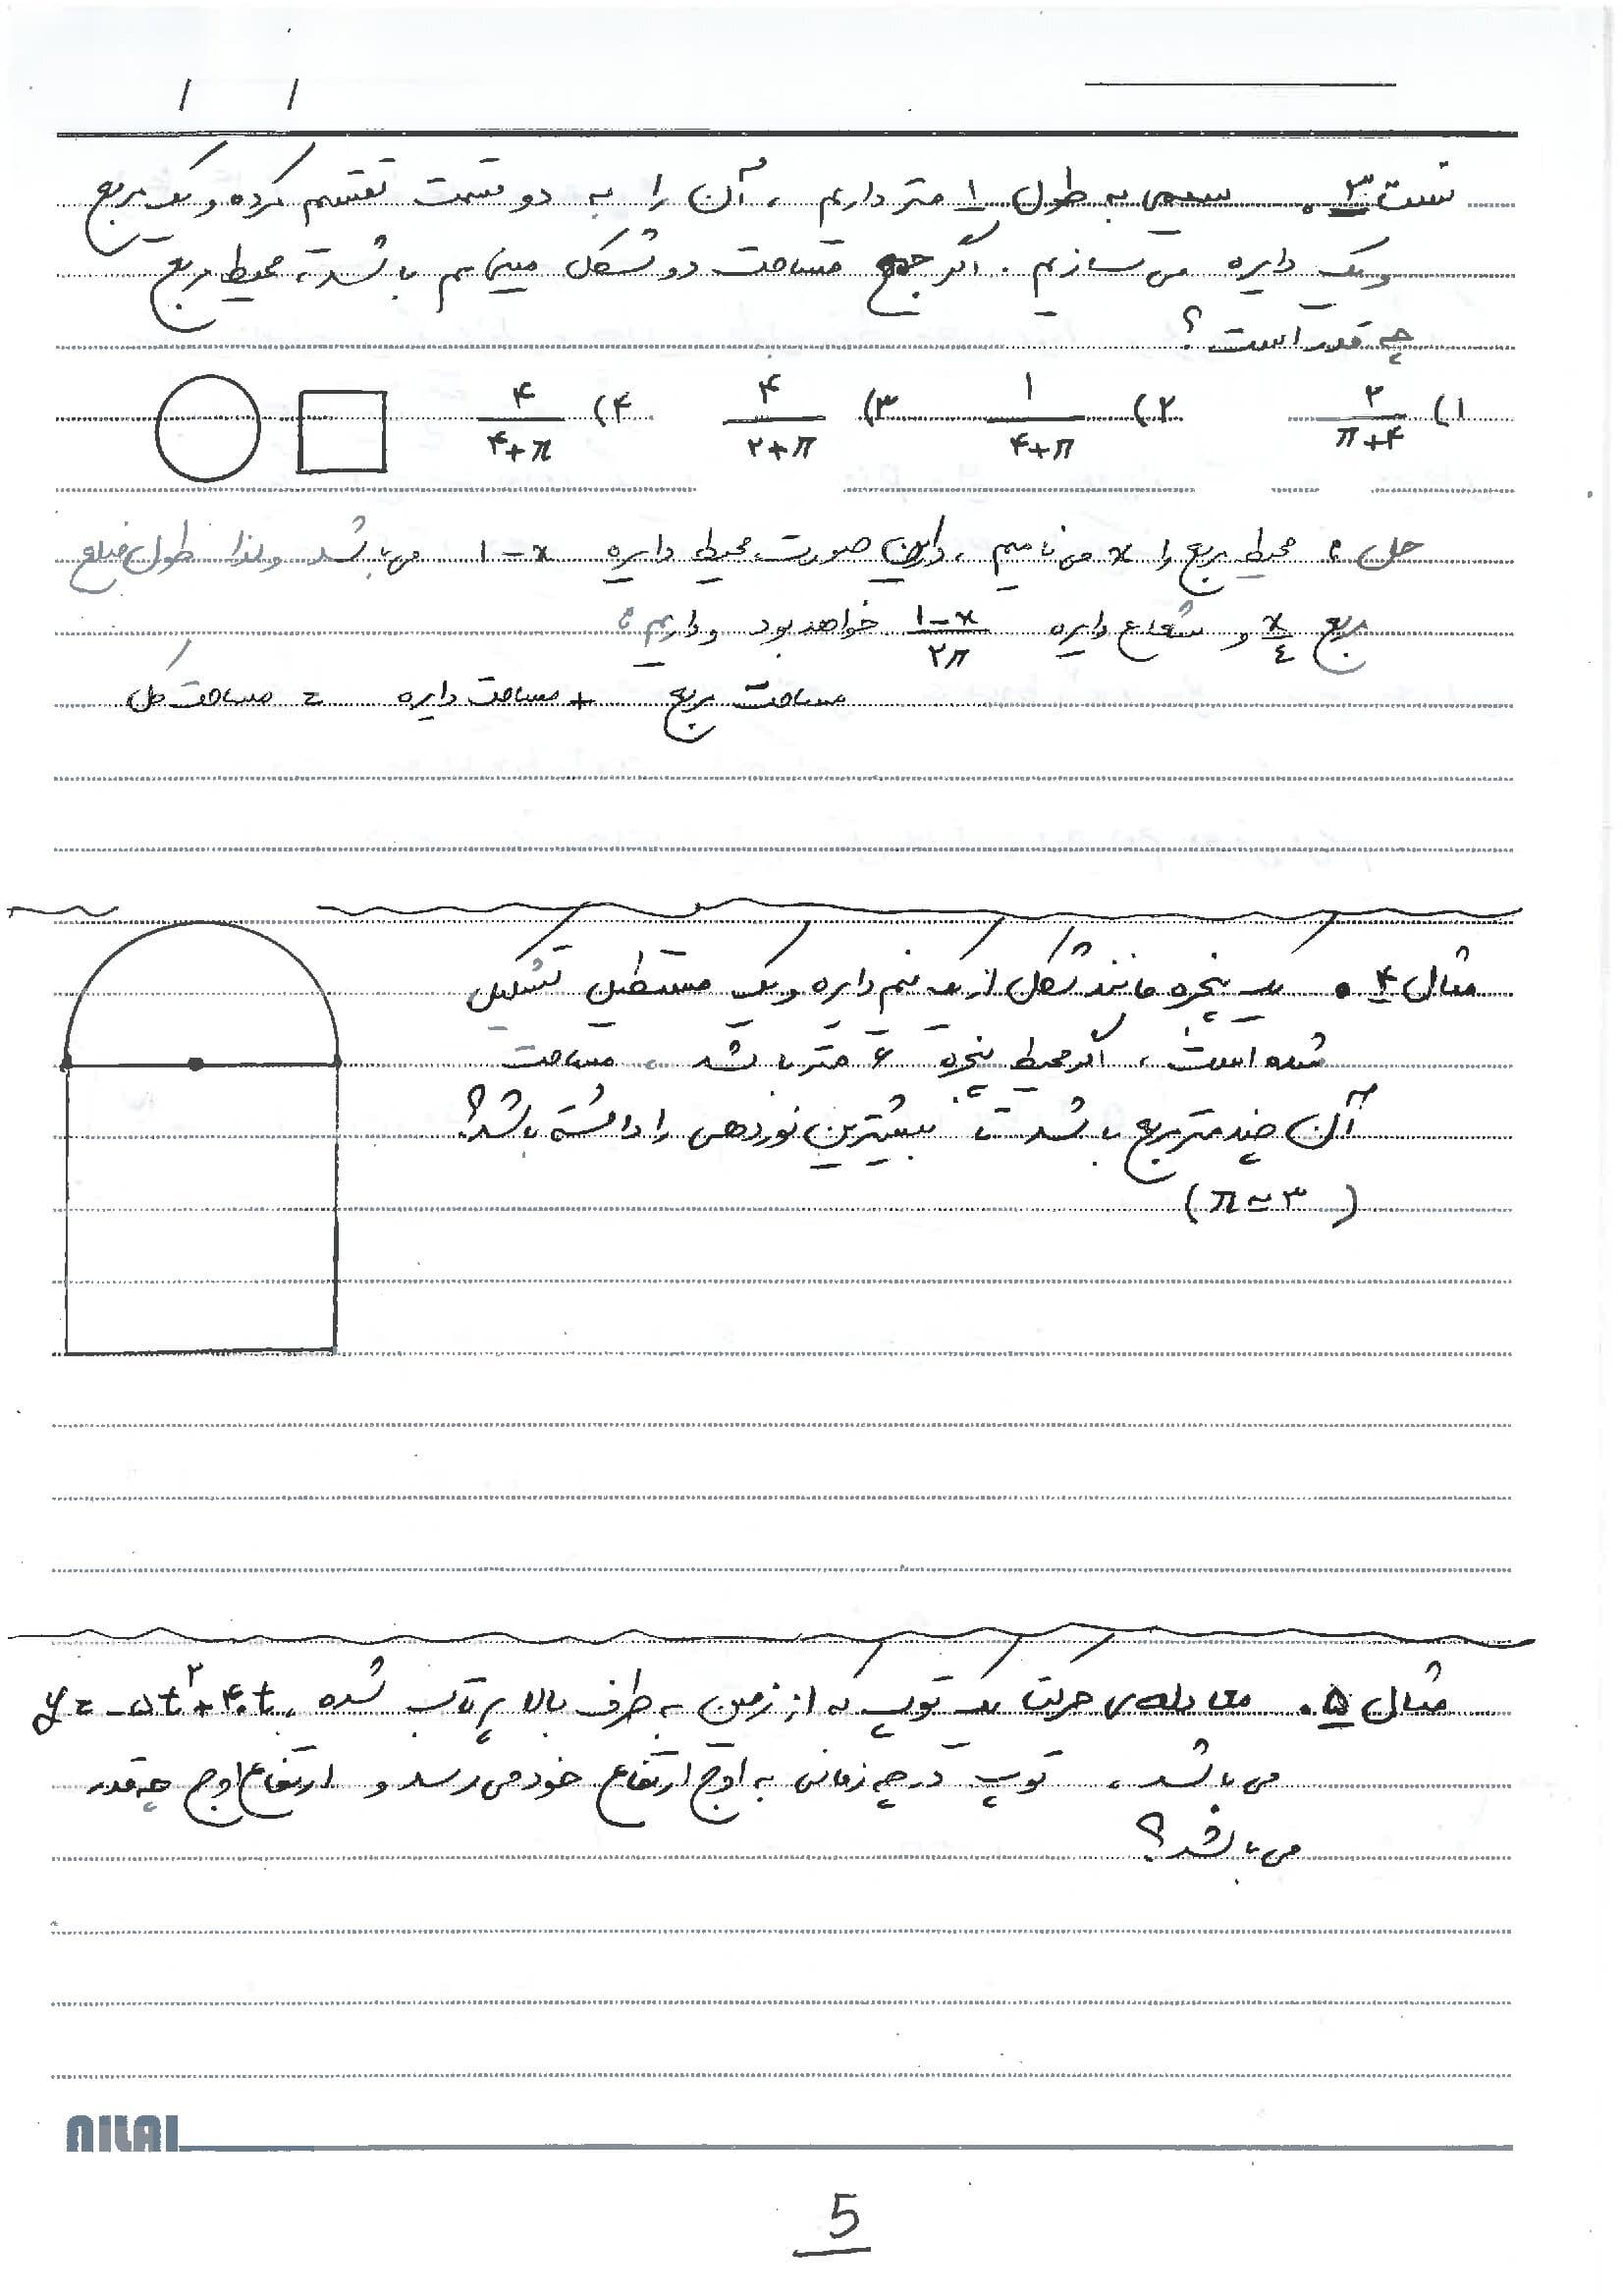 تست ۳. سیمی به طول ۱ متر داریم، آن را به دو قسمت تقسیم کرده و یک مربع
و یک دایره می سازیم. اگر جمع مساحت دو شکل مینیمم باشد، محیط مربع
چه قدر است؟
۱) ۲/(π+۴) ۲) ۱/(۴+π) ۳) ۴/(۲+π) ۴) ۴/(۴+π)
حل: محیط مربع را x می نامیم، دراین صورت محیط دایره ۱-x می باشد و لذا طول ضلع
مربع x/٤ و شعاع دایره (۱-x)/۲π خواهد بود و داریم:
مساحت مربع + مساحت دایره = مساحت کل
مثال ۴. یک پنجره مانند شکل از یک نیم دایره و یک مستطیل تشکیل
شده است، اگر محیط پنجره ۶ متر باشد، مساحت
آن چند متر مربع باشد تا بیشترین نوردهی را داشته باشد؟
(π≃۳)
مثال ۵. معادله ی حرکت یک توپ که از زمین به طرف بالا پرتاب شده، y=-۵t²+۴۰t
می باشد، توپ در چه زمانی به اوج ارتفاع خود می رسد و ارتفاع اوج چه قدر
می باشد؟
NILAI
5